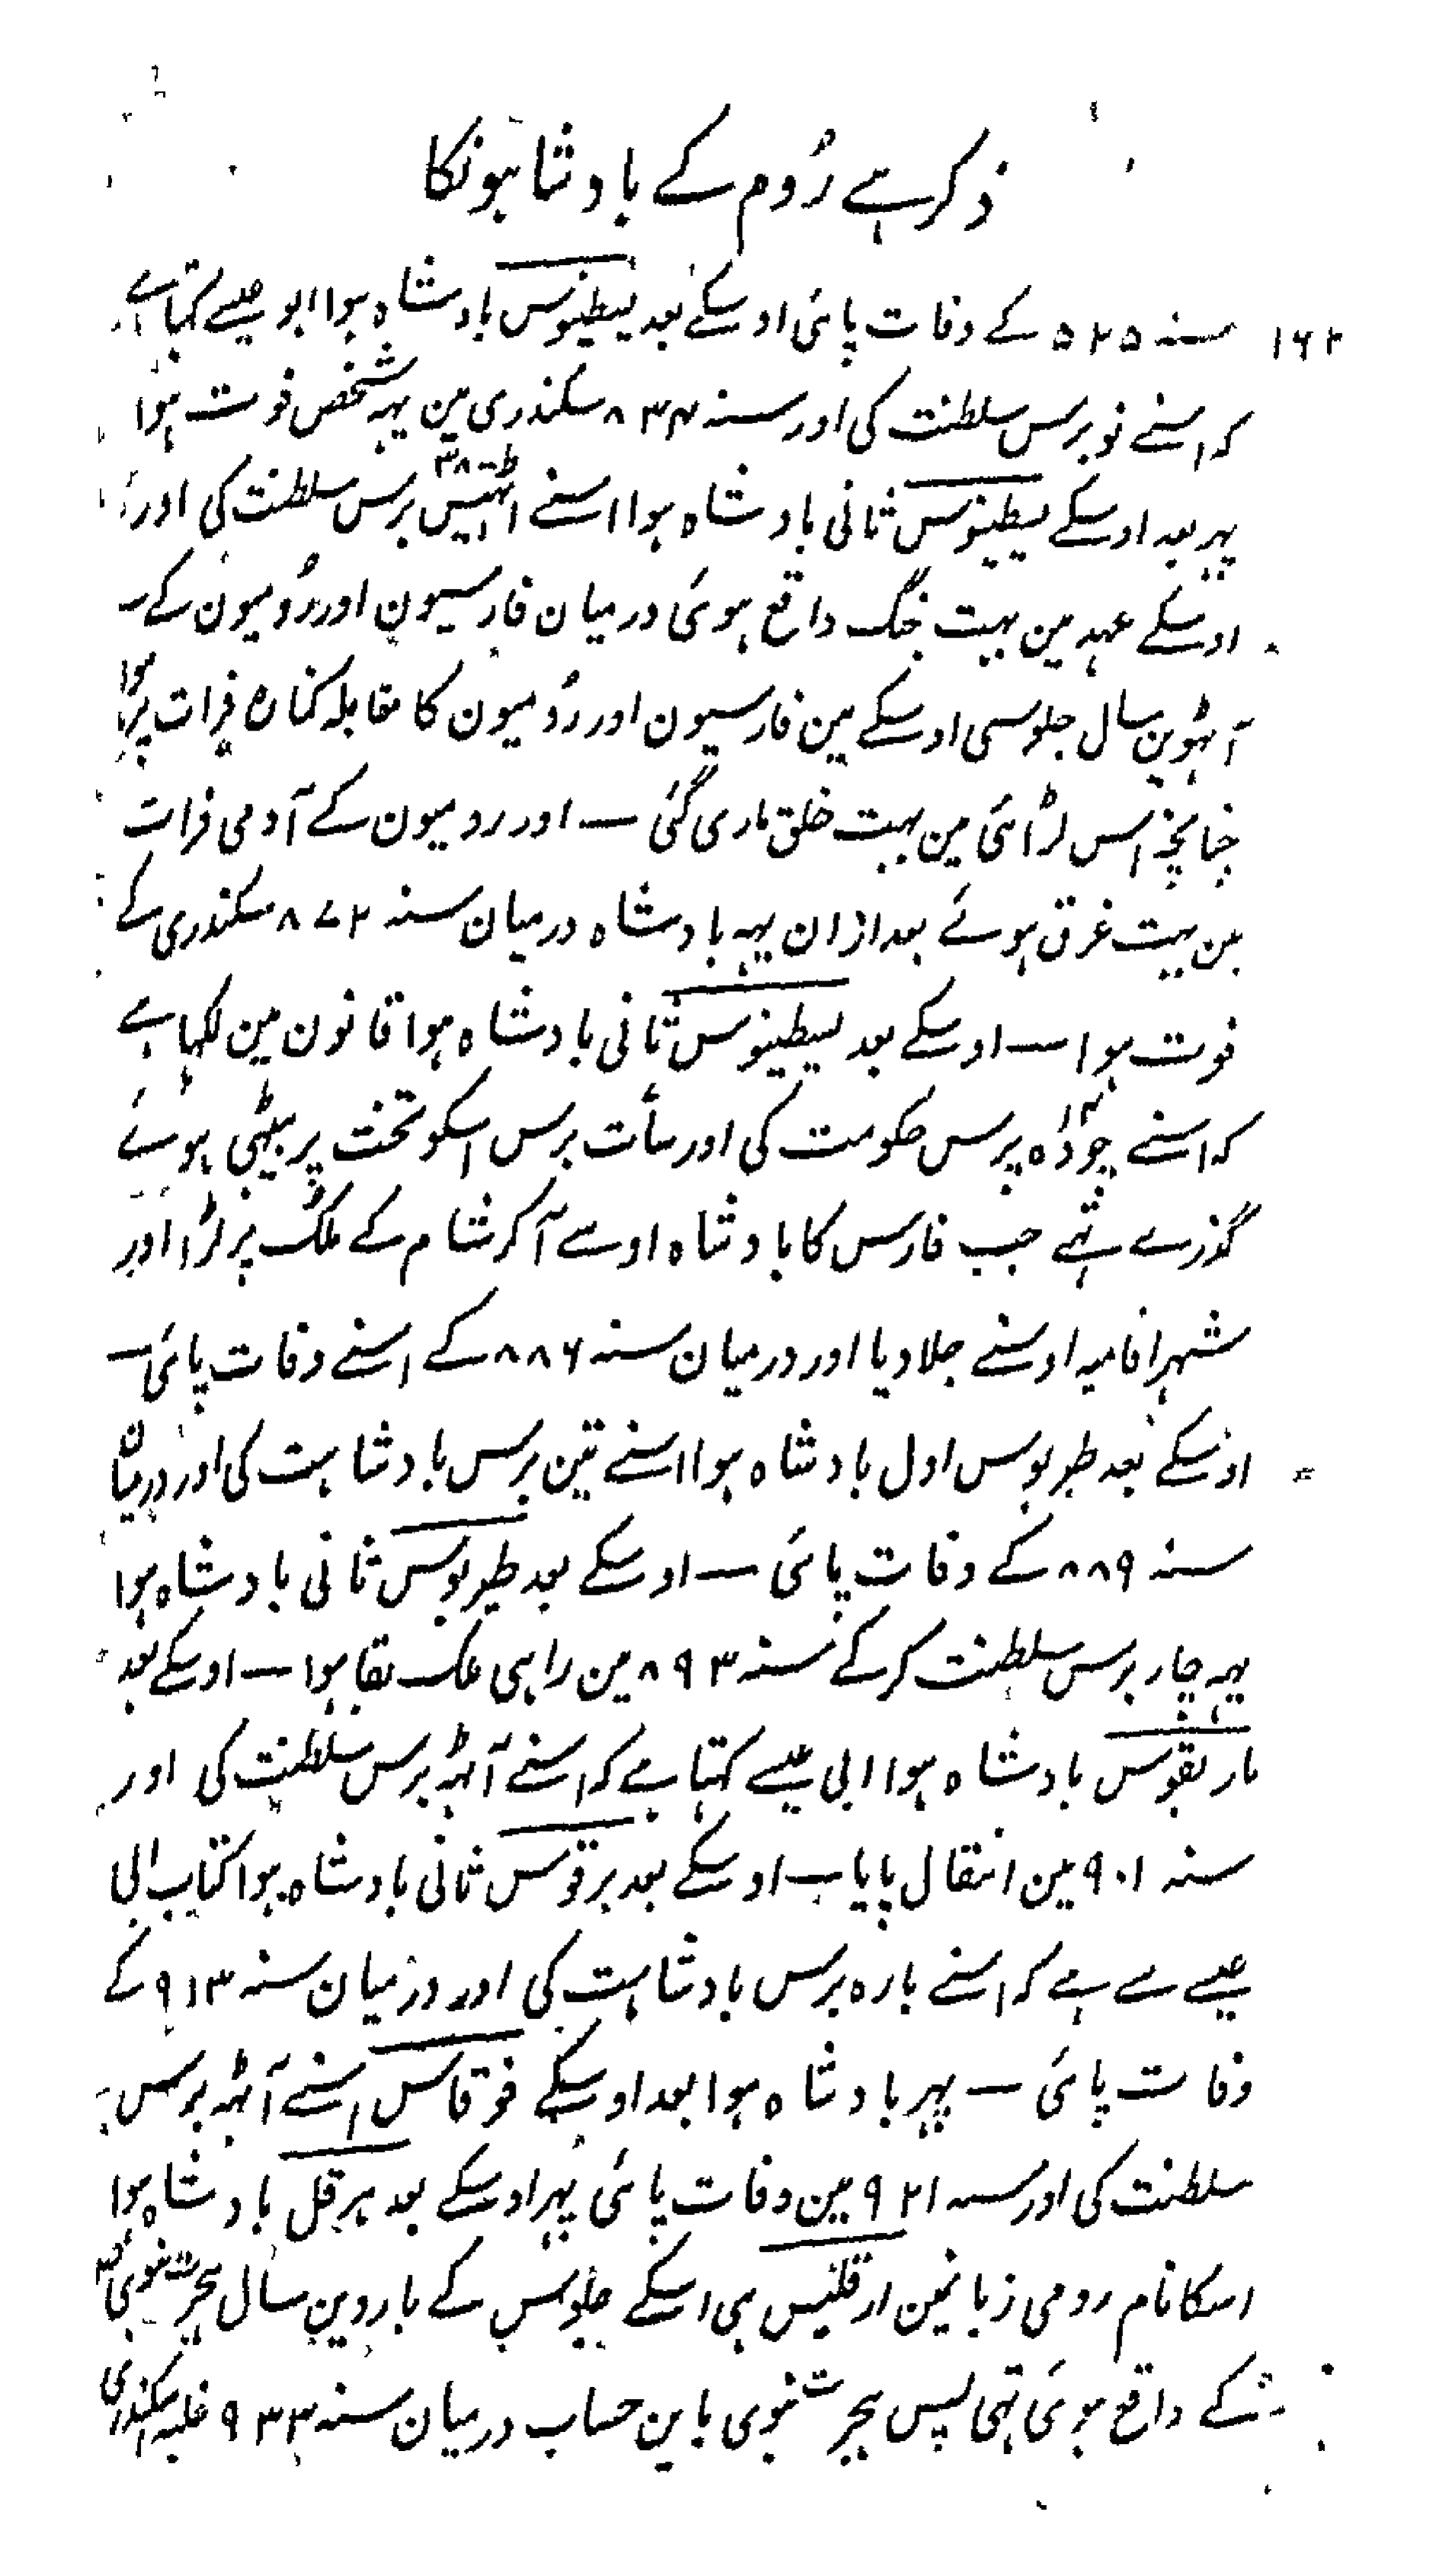 ذکر ہے رُوم کے بادشاہونکا
۱۶۲
سنہ ۵۲۵ کے وفات پائی اوسکے بعد یسطینوس بادشاہ ہوا ابو عیسے کہتا ہے
کہ اسنے نو برس سلطنت کی اور سنہ ۸۳۴ سکندری مین یہہ شخص فوت ہوا
پہر بعد اوسکے یسطینوس ثانی بادشاہ ہوا اسنے اٹہتیس ۳۸ برس سلطنت کی اور
اوسکے عہد مین بہت جنگ واقع ہوئی درمیان فارسیون اور رُومیون کے
آٹہوین سال جلوسی اوسکے مین فارسیون اور رُومیون کا مقابلہ کنارہ فرات پر ہوا
چنانچہ اس لڑائی مین بہت خلق ماری گئی — اور رومیون کے آدمی فرات
مین بہت غرق ہوئے بعد ازان یہہ بادشاہ درمیان سنہ ۸۷۲ سکندری کے
فوت ہوا — اوسکے بعد یسطینوس ثانی بادشاہ ہوا قانون مین لکہا ہے
کہ اسنے چودہ ۱۴ برس حکومت کی اور سات برس اسکو تخت پر بیٹہی ہوئے
گذرے تہے جب فارس کا بادشاہ اوسے آکر شام کے ملک پر لڑا اور
شہر افامیہ اوسنے جلادیا اور درمیان سنہ ۸۸۶ کے اسنے وفات پائی —
اوسکے بعد طبریوس اول بادشاہ ہوا اسنے تین برس بادشاہت کی اور درمیان
سنہ ۸۸۹ کے وفات پائی — اوسکے بعد طبریوس ثانی بادشاہ ہوا
یہہ چار برس سلطنت کرکے سنہ ۸۹۳ مین راہی ملک بقا ہوا — اوسکے بعد
ماریقوس بادشاہ ہوا ابی عیسے کہتا ہے کہ اسنے آٹہہ برس سلطنت کی اور
سنہ ۹۰۱ مین انتقال پایا اوسکے بعد برقوس ثانی بادشاہ ہوا کتاب ابی
عیسے سے ہے کہ اسنے بارہ برس بادشاہت کی اور درمیان سنہ ۹۱۳ کے
وفات پائی — پہر بادشاہ ہوا بعد اوسکے فوقاس اسنے آٹہہ برس
سلطنت کی اور سنہ ۹۲۱ مین وفات پائی پہر اوسکے بعد ہرقل بادشاہ ہوا
اسکا نام رومی زبانمین ارقلیس ہی اسکے جلوس کے باروین سال ہجرت نبوی
کے واقع ہوئی تہی پس ہجرت نبوی باین حساب درمیان سنہ ۹۳۳ غلبہ اسکندری